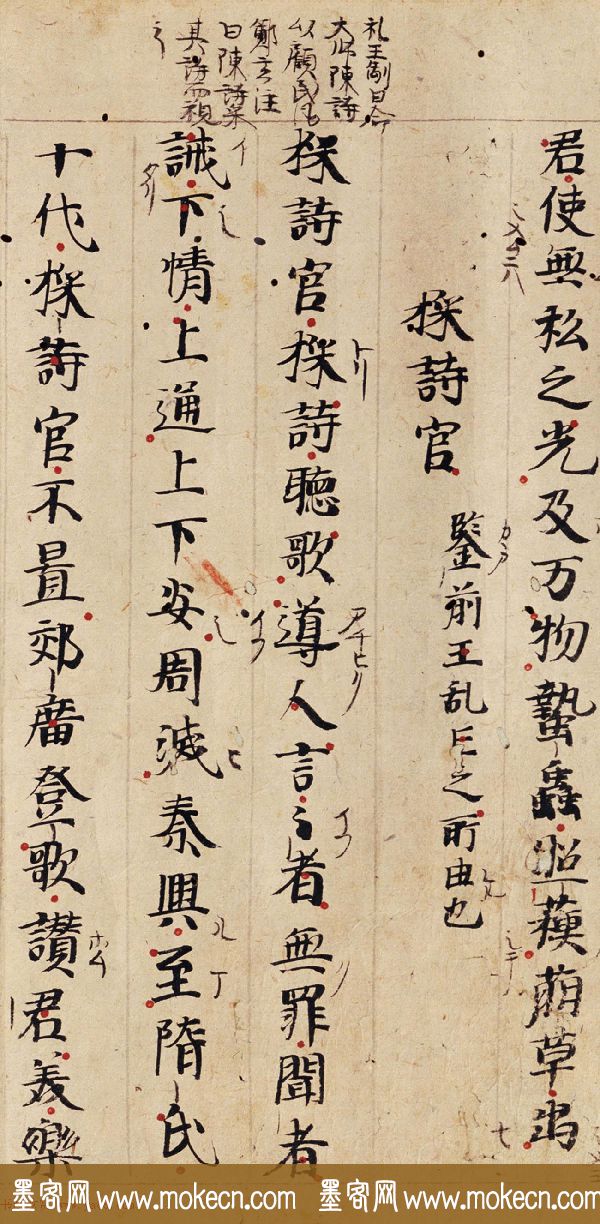 君使無私之光及万物蟄蟲照蘓萠草出
採詩官 鑒前王乱亡之所由也
礼王制曰命
大師陳詩
以顧民風
鄭玄注
曰陳詩采
其詩而視
之
採詩官採詩聽歌導人言々者無罪聞者
誡下情上通上下安周滅秦興至隋氏
十代採詩官不置郊廟登歌讃君美樂
墨客网 www.mokecn.com 墨客网 www.mokecn.com